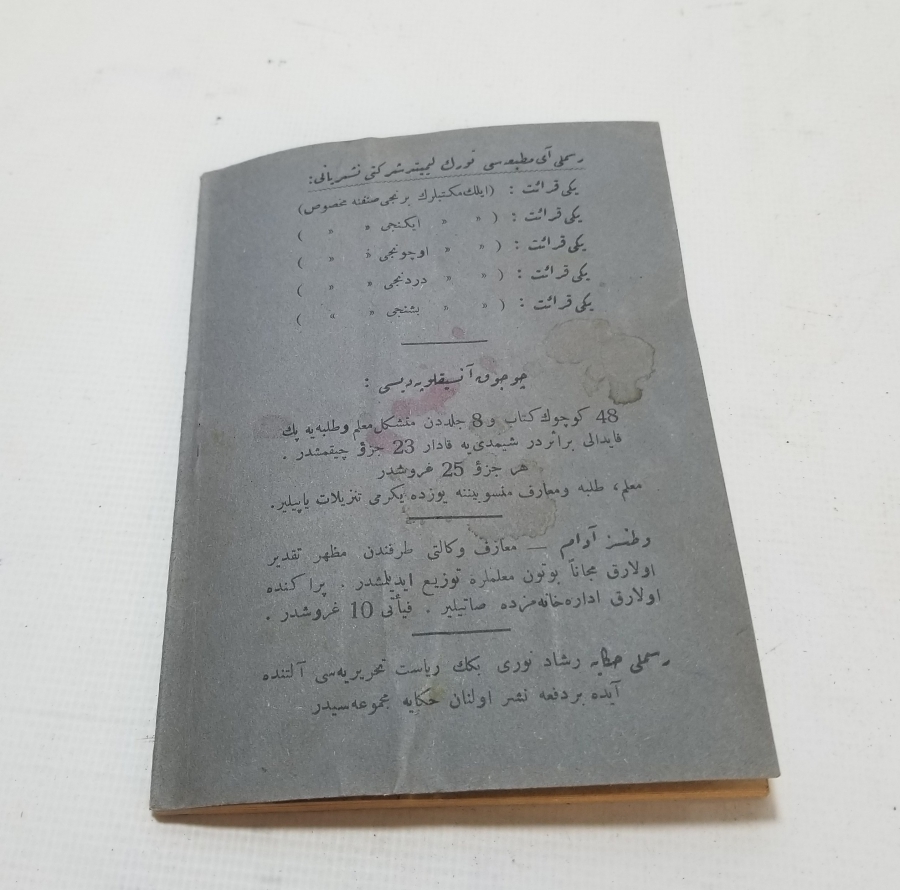 رسملی آی مطبعه‌سی تورك لیمیتد شركتی نشریاتی:
یكی قرائت : (ایلك مكتبلرك برنجی صنفنه مخصوص)
یكی قرائت : ( » » ایكنجی » » )
یكی قرائت : ( » » اوچونجی » » )
یكی قرائت : ( » » دردنجی » » )
یكی قرائت : ( » » بشنجی » » )
چوجوق آنسیقلوپه‌دیسی :
48 كوچوك كتاب و 8 جلددن متشكل معلم و طلبه‌یه پك
فایدالی براثردر شیمدی‌یه قادار 23 جزؤ چیقمشدر .
هر جزؤ 25 غروشدر
معلم، طلبه ومعارف منسوبیننه یوزده یكرمی تنزیلات یاپیلیر.
وطنسز آدام — معارف وكالتی طرفندن مظهر تقدیر
اولارق مجاناً بوتون معلملره توزیع ایدیلمشدر . پراكنده
اولارق اداره‌خانه‌مزده صاتیلیر . فیأتی 10 غروشدر .
رسملی حكایه رشاد نوری بكك ریاست تحریریه‌سی آلتنده
آیده بردفعه نشر اولنان حكایه مجموعه‌سیدر